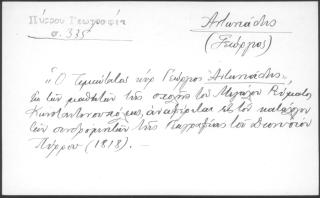 Πύρρου Γεωγραφία
σ. 335
Ἀσλανιάδης
(Γεώργιος)
"Ὁ τιμιώτατος κὺρ Γεώργιος
ἐκ τῶν μαθητῶν τῆς σχολῆς τοῦ Μεγάλου Ρεύματος
Κωνσταντινουπόλεως, ἀναφέρεται εἰς τὸν κατάλογον
τῶν συνδρομητῶν τῆς Γεωγραφίας τοῦ Διονυσίου
Πύρρου (1818). —